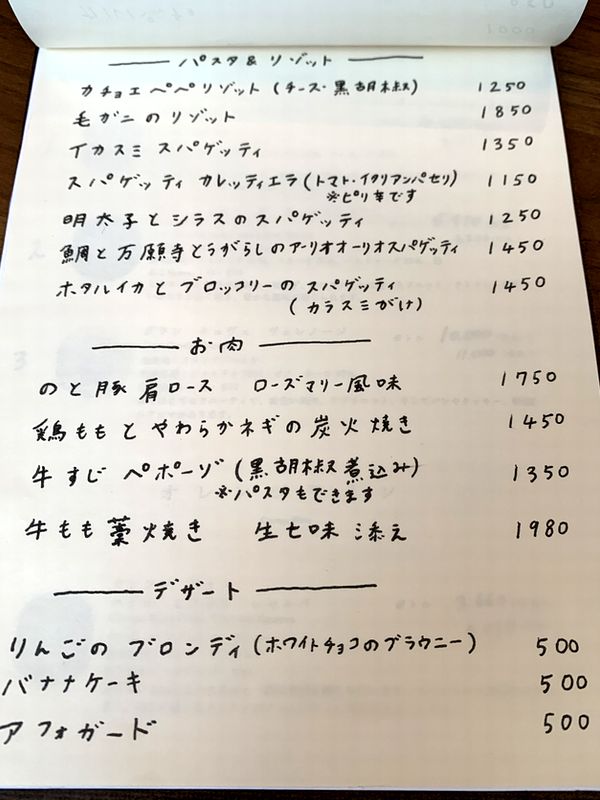 パスタ&リゾット
カチョエペペリゾット(チーズ・黒胡椒) 1250
毛ガニのリゾット 1850
イカスミ スパゲッティ 1350
スパゲッティ カレッティエラ(トマト・イタリアンパセリ) 1150
※ピリ辛です
明太子とシラスのスパゲッティ 1250
鯛と万願寺とうがらしのアーリオオーリオスパゲッティ 1450
ホタルイカとブロッコリーのスパゲッティ 1450
(カラスミがけ)
お肉
のと豚 肩ロース ローズマリー風味 1750
鶏ももとやわらかネギの炭火焼き 1450
牛すじ ペポーゾ(黒胡椒煮込み) 1350
※パスタもできます
牛もも藁焼き 生七味添え 1980
デザート
りんごのブロンディ(ホワイトチョコのブラウニー) 500
バナナケーキ 500
アフォガード 500